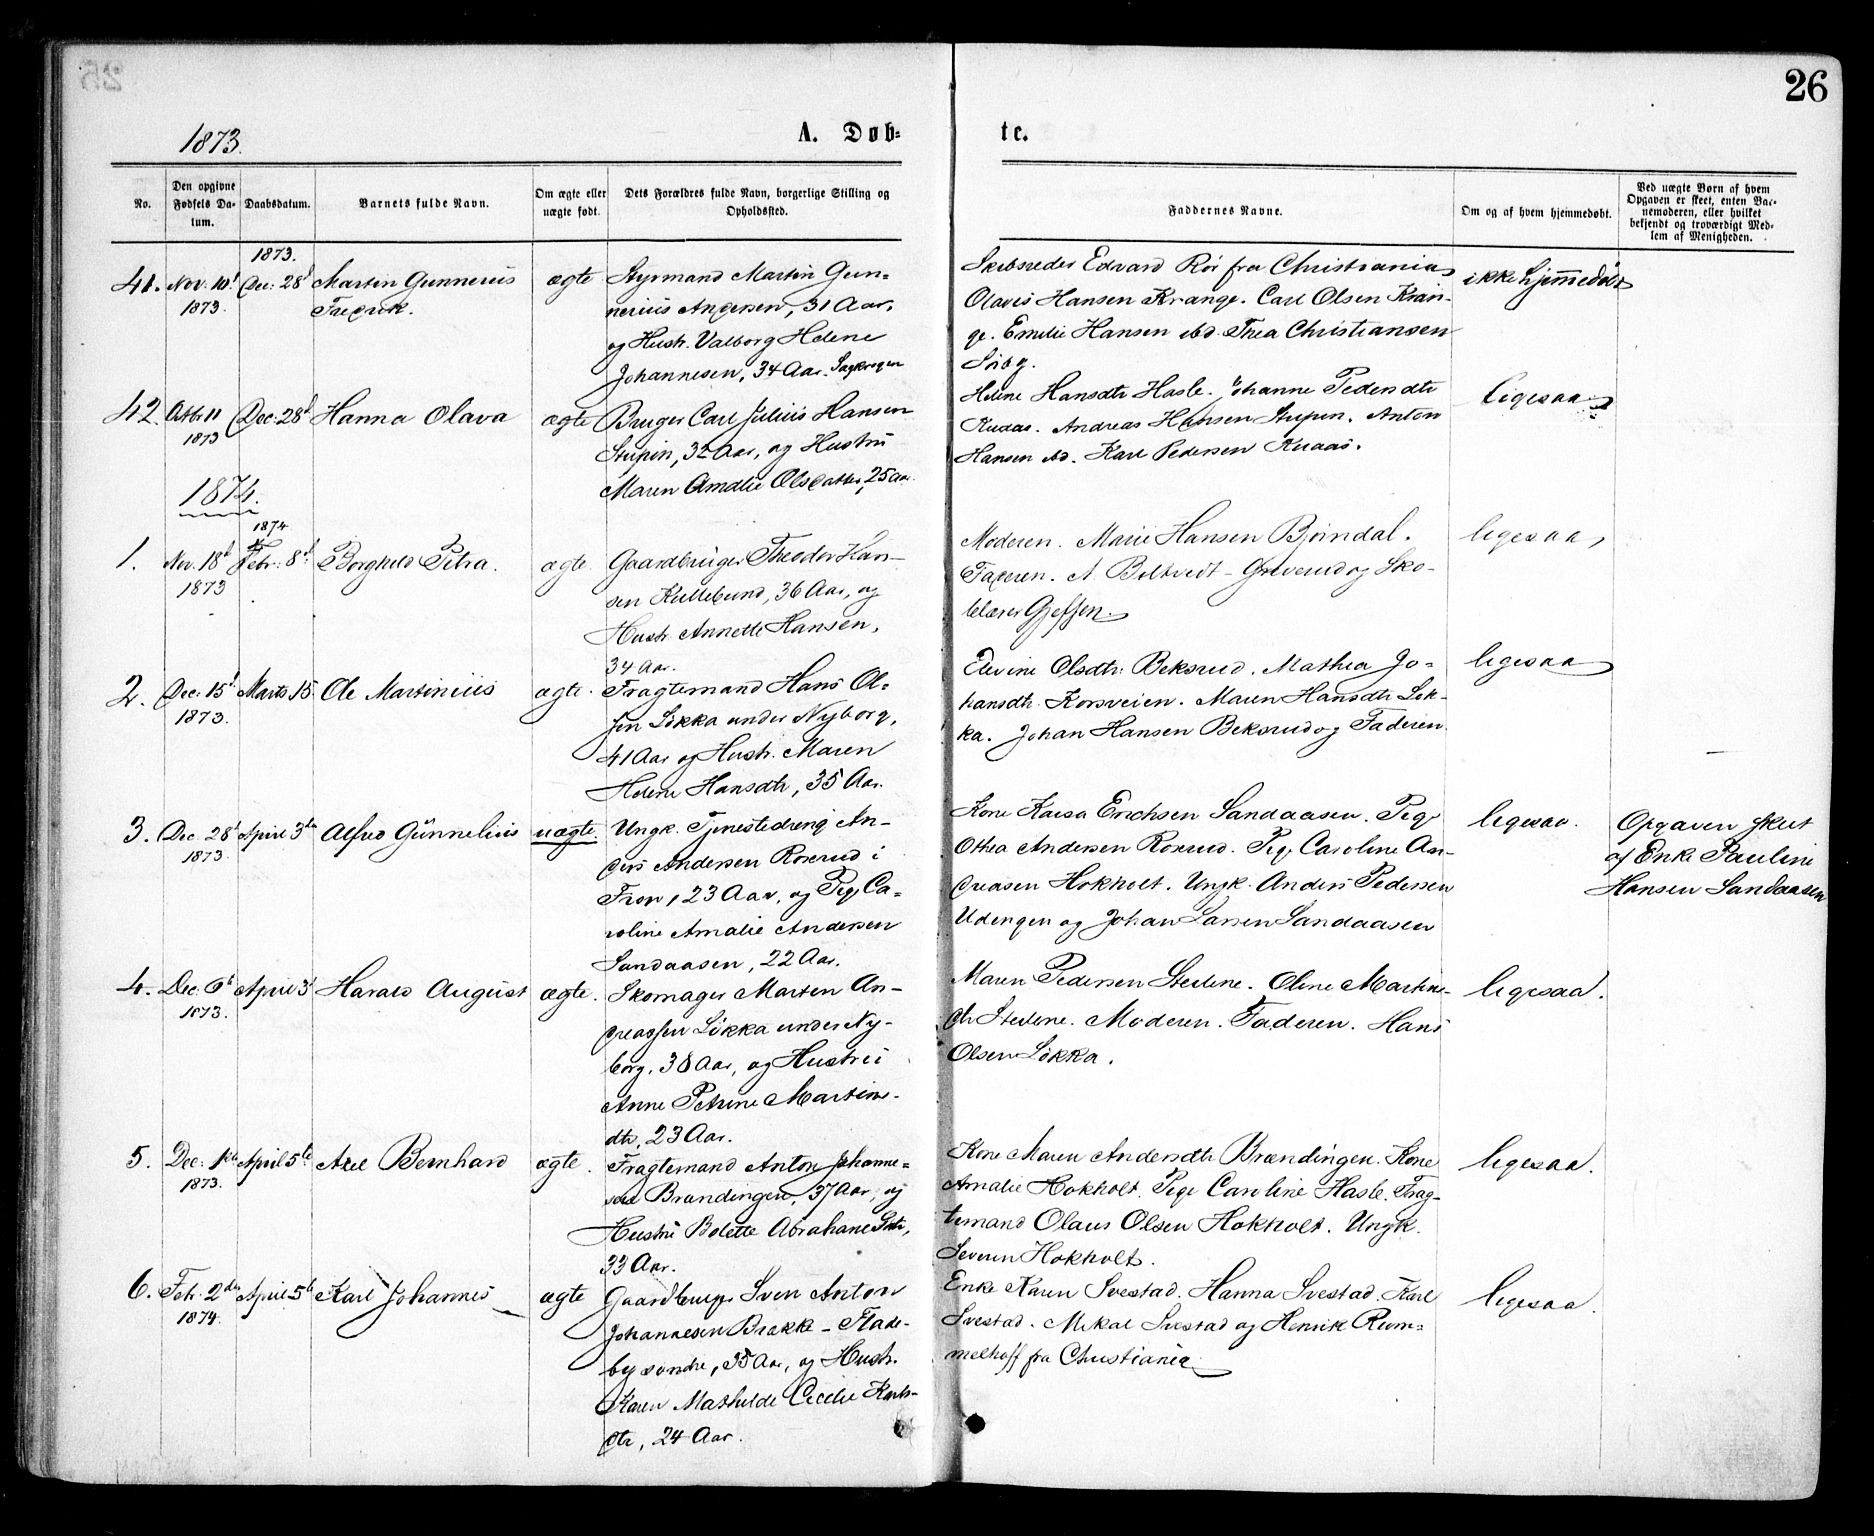 26
1873.
A. Døb-
te.
No.
Den opgivne Fødsels Da-
tum.
Daabsdatum.
Barnets fulde Navn.
Om ægte eller
uægte født.
Dets Forældres fulde Navn, borgerlige Stilling og
Opholdssted.
Faddernes Navne.
Om og af hvem hjemmedøbt.
Ved uægte Børn af hvem
Opgaven er skeet, enten Bar-
nemoderen, eller hvilket
bekjendt og troværdigt Med-
lem af Menigheden.
1873.
41. Nov. 10d 1873. Dec. 28d Martin Gunnerius
Fredrik.
ægte
Styrmand Martin Gun-
nerius Andersen, 31 Aar,
og Hustr. Valborg Helene
Johannesen, 34 Aar.
Skibsreder Edvard Rör fra Christiania
Olavis Hansen Krange. Carl Olsen Kran-
ge. Emilie Hansen ibd. Thea Christiansen
ikke hjemmedøbt
42. Octbr 11 1873 Dec. 28d Hanna Olava
ægte
Bruger Carl Julius Hansen
Stupin, 32 Aar, og Hustru
Maren Amalie Olsdatter, 25 Aar.
Helene Hansdtr Hasle. Johanne Pedersdtr
Andreas Hansen Stupin. Anton
Hansen ibd. Karl Pedersen
ligesaa
1874.
1874
1. Nov. 18d 1873 Febr. 8d Borghild Petra.
ægte.
Gaardbruger Theodor Han-
sen Kullebund, 36 Aar, og
Hustr. Annette Hansen,
34 Aar.
Moderen. Marie Hansen Bjørndal.
Faderen. A. Boltvedt - Greverud og Sko-
lelærer
ligesaa
2. Dec. 15d 1873. Marts 15 Ole Martinius
ægte.
Fragtemand Hans Ol-
sen Løkka under Nyborg,
41 Aar og Hustr. Maren
Helene Hansdtr, 35 Aar.
Elevine Olsdtr. Beksrud. Mathea Jo-
hansdtr. Korsveien. Maren Hansdtr Løk-
ka. Johan Hansen Beksrud og Faderen.
ligesaa
3. Dec. 28d 1873. April 3die Alfred Günnelius
uægte.
Ungk. Tjenestedreng An-
ders Andersen Roxrud i
Fron, 23 Aar, og Pige Ca-
roline Amalie Andersen
Sandaasen, 22 Aar.
Kone Kaisa Erichsen Sandaasen. Pige
Othea Andersen Roxrud. Pige Caroline An-
dreasen Hokholt. Ungk. Anders Pedersen
Udengen og Johan Larsen Sandaasen
ligesaa.
Opgaven skeet
af Enke Pauline
Hansen Sandaasen
4. Dec. 6t 1873. April 3d Harald August
ægte.
Skomager Martin An-
dreassen Løkka under Ny-
borg, 38 Aar, og Hustru
Anne Petrine Martins-
dtr, 23 Aar.
Maren Pedersen Stedene. Oline Martins-
dtr Stedene. Moderen. Faderen. Hans
Olsen Løkka.
ligesaa.
5. Dec. 1ste 1873. April 5te Axel Bernhard
ægte.
Fragtemand Anton Johanne-
sen Brændingen, 37 Aar, og
Hustru Bolette Abrahamsdtr,
33 Aar.
Kone Maren Andersdtr Brændingen. Kone
Amalie Hokholt. Pige Caroline Hasle. Frag-
temand Olaus Olsen Hokholt. Ungk.
Severin Hokholt.
ligesaa.
6. Febr. 2den 1874. April 5te Karl Johannes
ægte
Gaardbruger Sven Anton
Johannesen Brække - Flade-
by søndre, 35 Aar, og Hustr.
Karen Mathilde Cecilie Karls-
dtr, 24 Aar.
Enke Karen Svestad. Hanna Svestad. Karl
Svestad. Mikal Svestad og Henrik Rum-
melhoff fra Christiania
ligesaa.